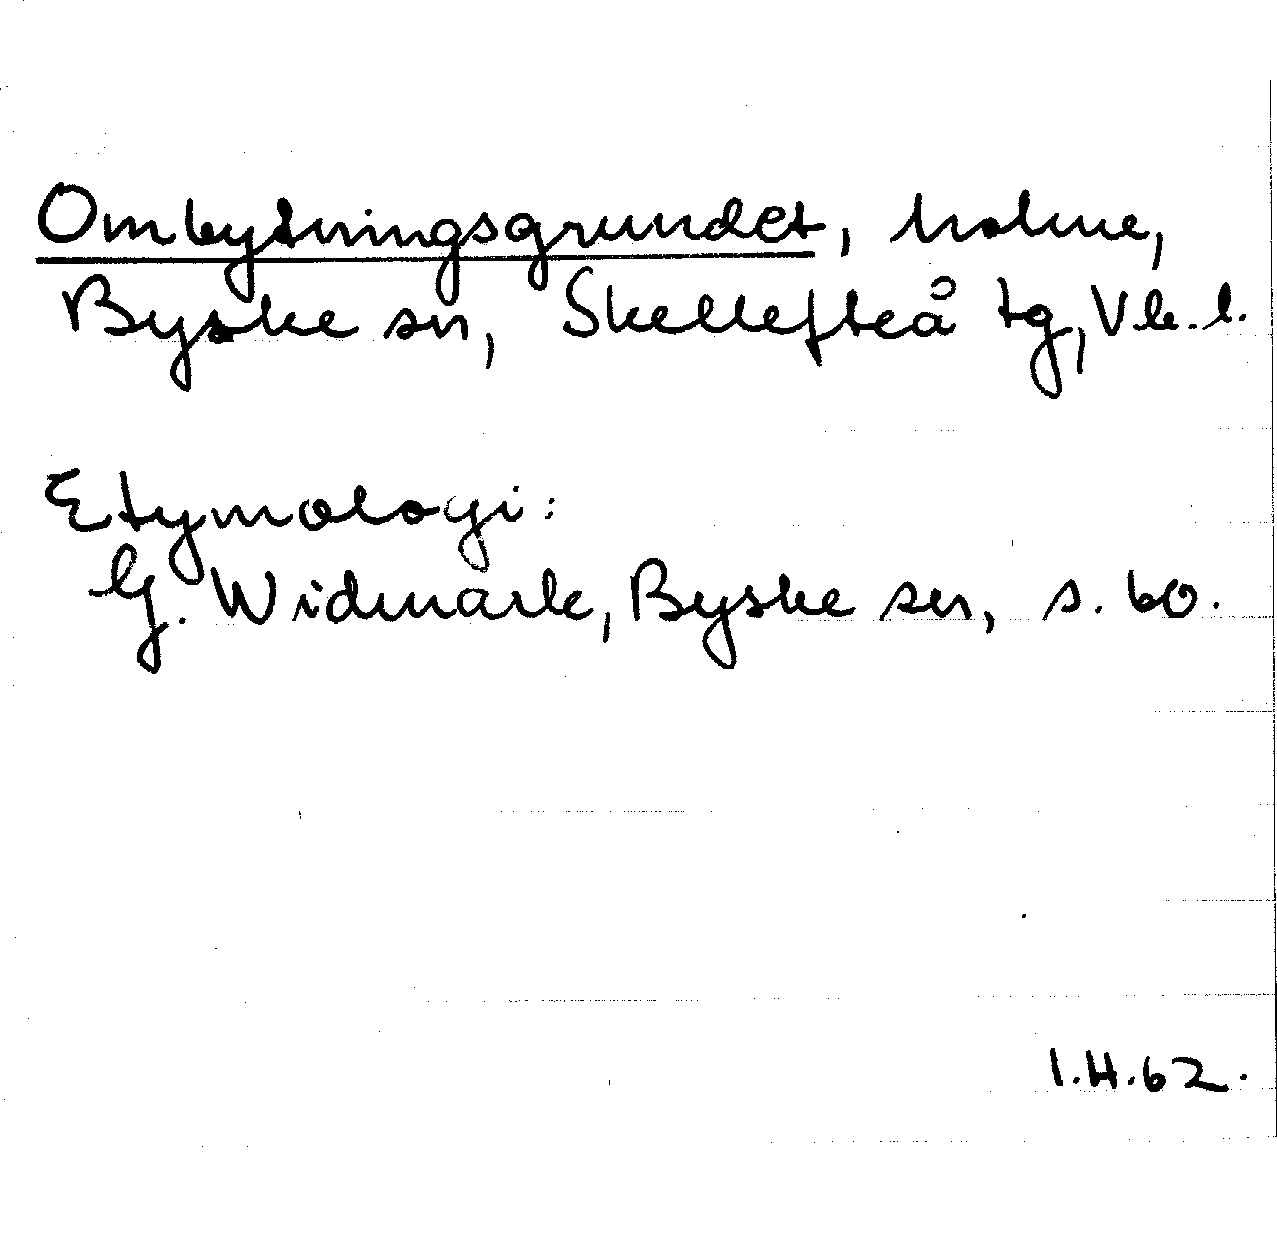 Ombytningsgrundet, holme,
Byske sn, Skellefteå tg, Vb. l.
Etymologi:
G. Widmark, Byske sn, s. 60.
I.H.62.